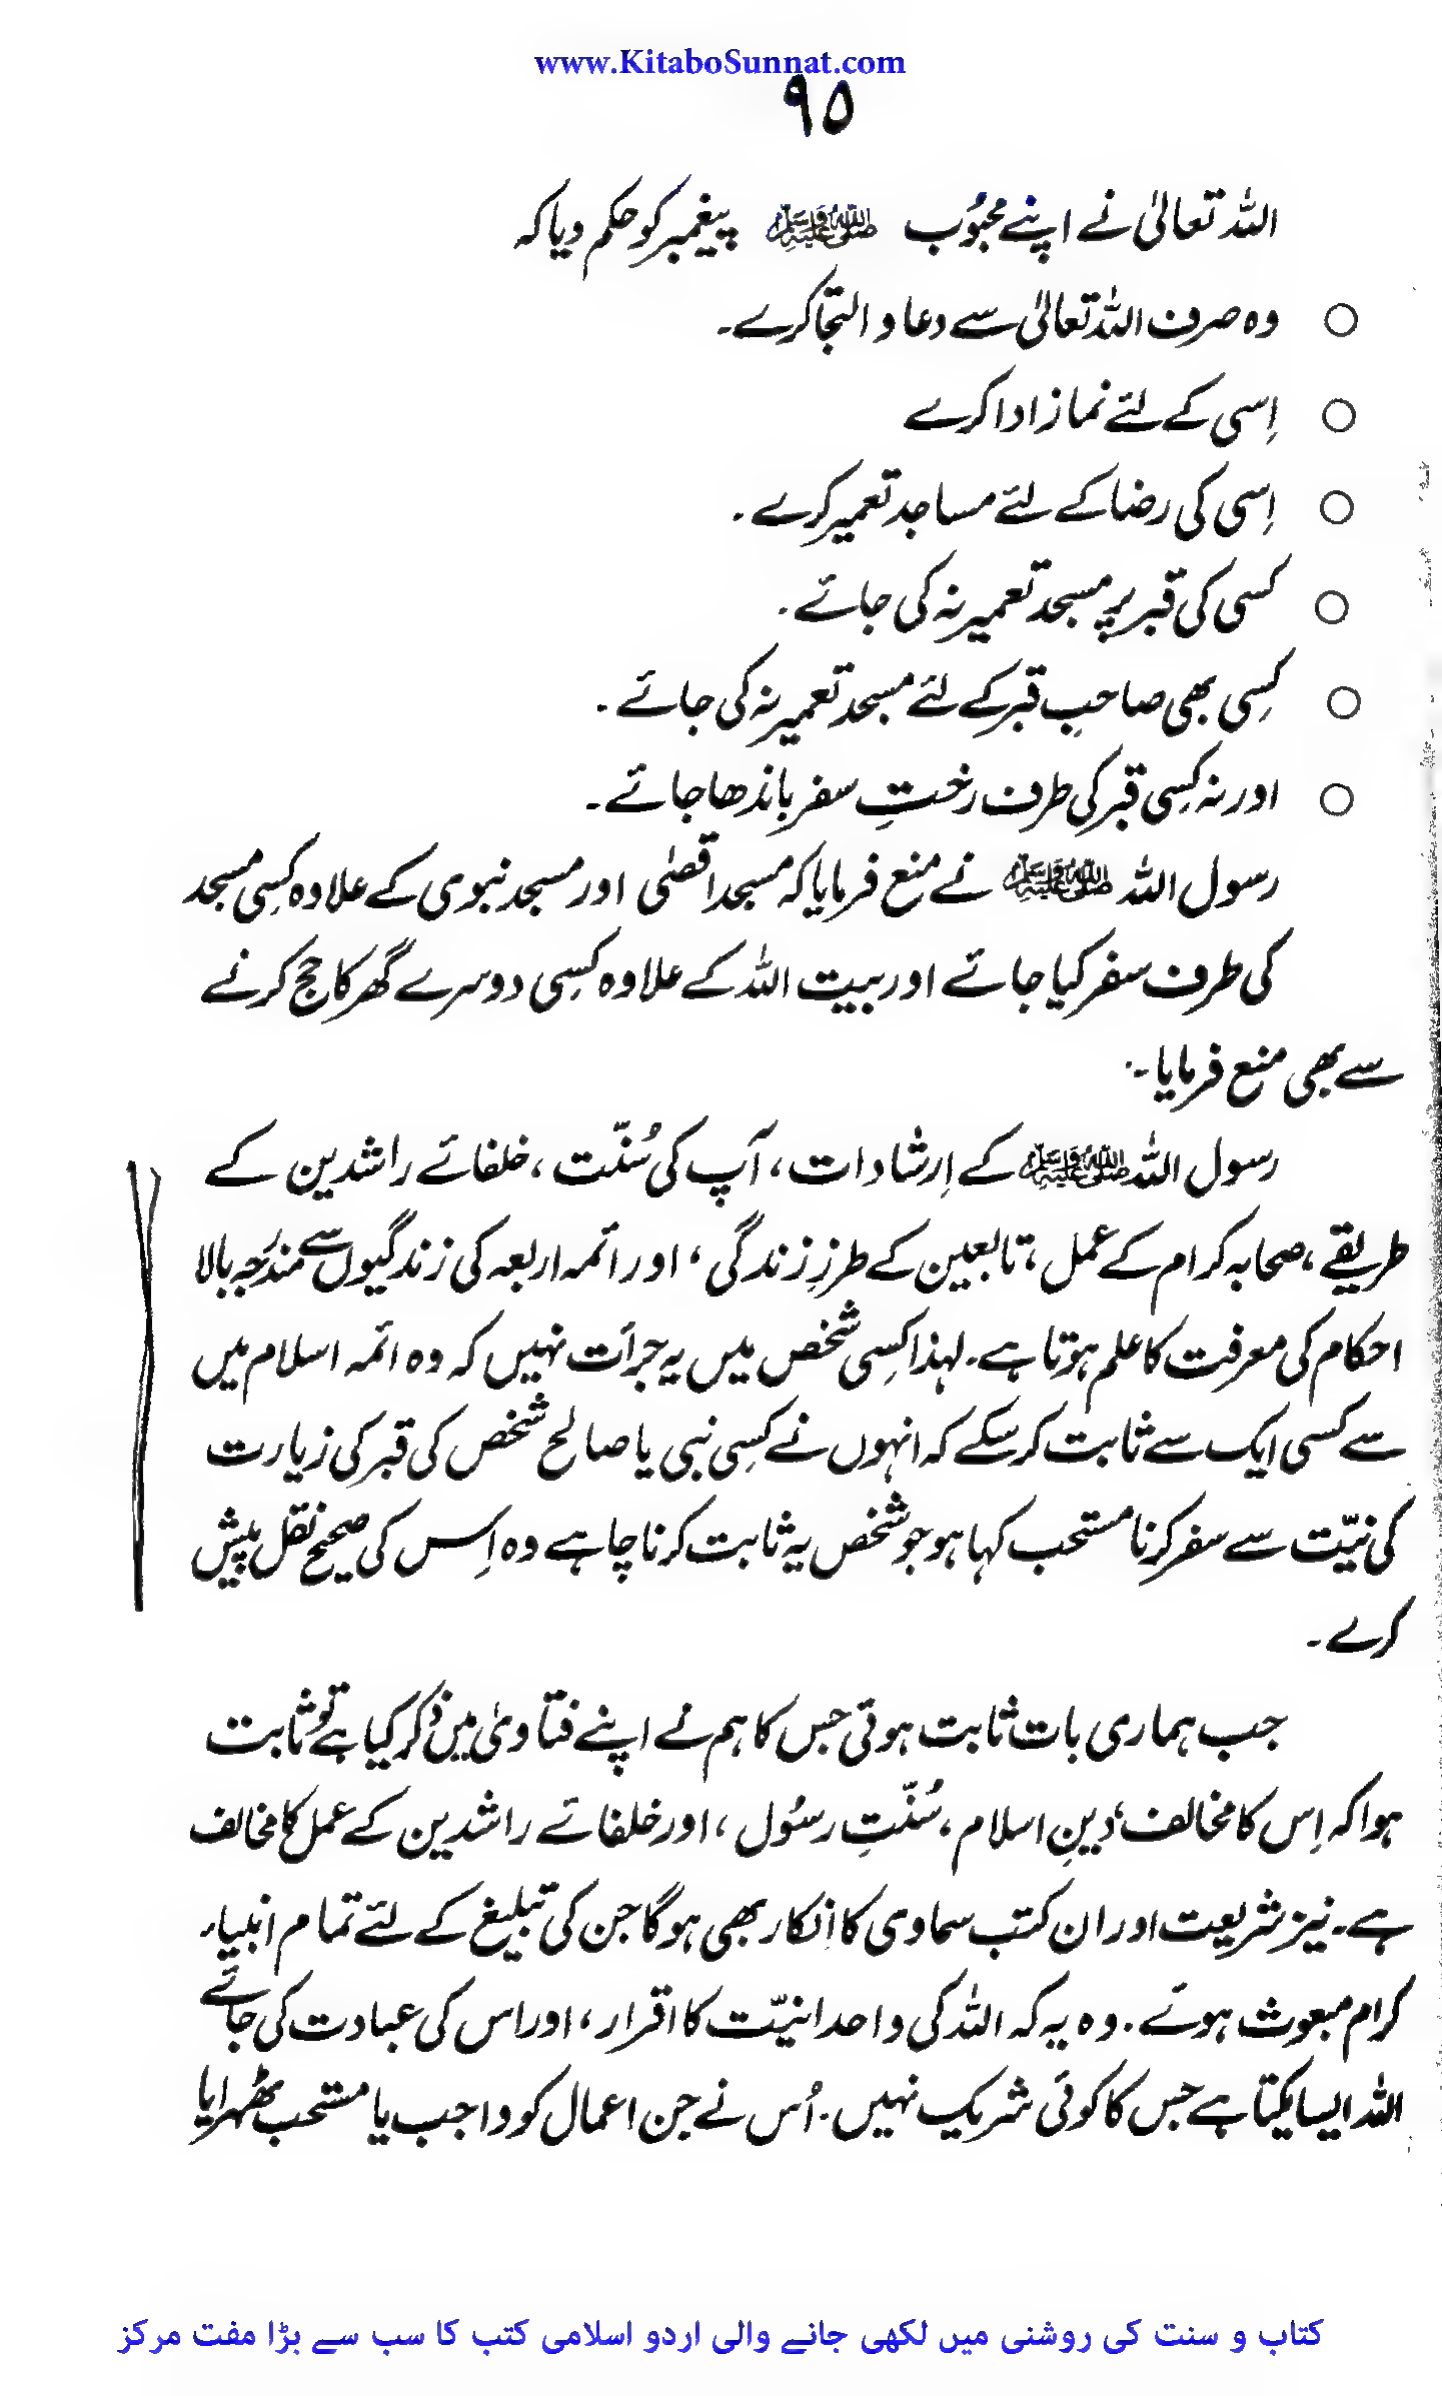 www.KitaboSunnat.com
۹۵
اللہ تعالیٰ نے اپنے محبُوب ﷺ پیغمبر کو حکم دیا کہ
○ وہ صرف اللہ تعالیٰ سے دعا و التجا کرے۔
○ اِسی کے لئے نماز ادا کرے
○ اِسی کی رضا کے لئے مساجد تعمیر کرے۔
○ کسی کی قبر پر مسجد تعمیر نہ کی جائے۔
○ کسِی بھی صاحبِ قبر کے لئے مسجد تعمیر نہ کی جائے۔
○ اور نہ کسِی قبر کی طرف رختِ سفر باندھا جائے۔
رسول اللہ ﷺ نے منع فرمایا کہ مسجد اقصٰی اور مسجد نبوی کے علاوہ کسِی مسجد
کی طرف سفر کیا جائے اور بیت اللہ کے علاوہ کسِی دوسرے گھر کا حج کرنے
سے بھی منع فرمایا۔
رسول اللہ ﷺ کے اِرشادات، آپ کی سُنّت، خلفائے راشدین کے
طریقے، صحابہ کرام کے عمل، تابعین کے طرزِ زندگی، اور ائمہ اربعہ کی زندگیوں سے مندرجہ بالا
احکام کی معرفت کا علم ہوتا ہے۔ لہذا کسِی شخص میں یہ جرأت نہیں کہ وہ ائمہ اسلام میں
سے کسی ایک سے ثابت کر سکے کہ انہوں نے کسِی نبی یا صالح شخص کی قبر کی زیارت
کی نیّت سے سفر کرنا مستحب کہا ہو جو شخص یہ ثابت کرنا چاہے وہ اِس کی صحیح نقل پیش
کرے۔
جب ہماری بات ثابت ہوئی جس کا ہم نے اپنے فتاویٰ میں ذکر کیا ہے تو ثابت
ہوا کہ اِس کا مخالف، دینِ اسلام، سُنّتِ رسُول، اور خلفائے راشدین کے عمل کا مخالف
ہے۔ نیز شریعت اور ان کتب سماوی کا اِنکار بھی ہو گا جن کی تبلیغ کے لئے تمام انبیاء
کرام مبعوث ہوئے۔ وہ یہ کہ اللہ کی واحدانیّت کا اقرار، اور اس کی عبادت کی جائے
اللہ ایسا یکتا ہے جس کا کوئی شریک نہیں۔ اُس نے جن اعمال کو واجب یا مستحب ٹھہرایا
کتاب و سنت کی روشنی میں لکھی جانے والی اردو اسلامی کتب کا سب سے بڑا مفت مرکز